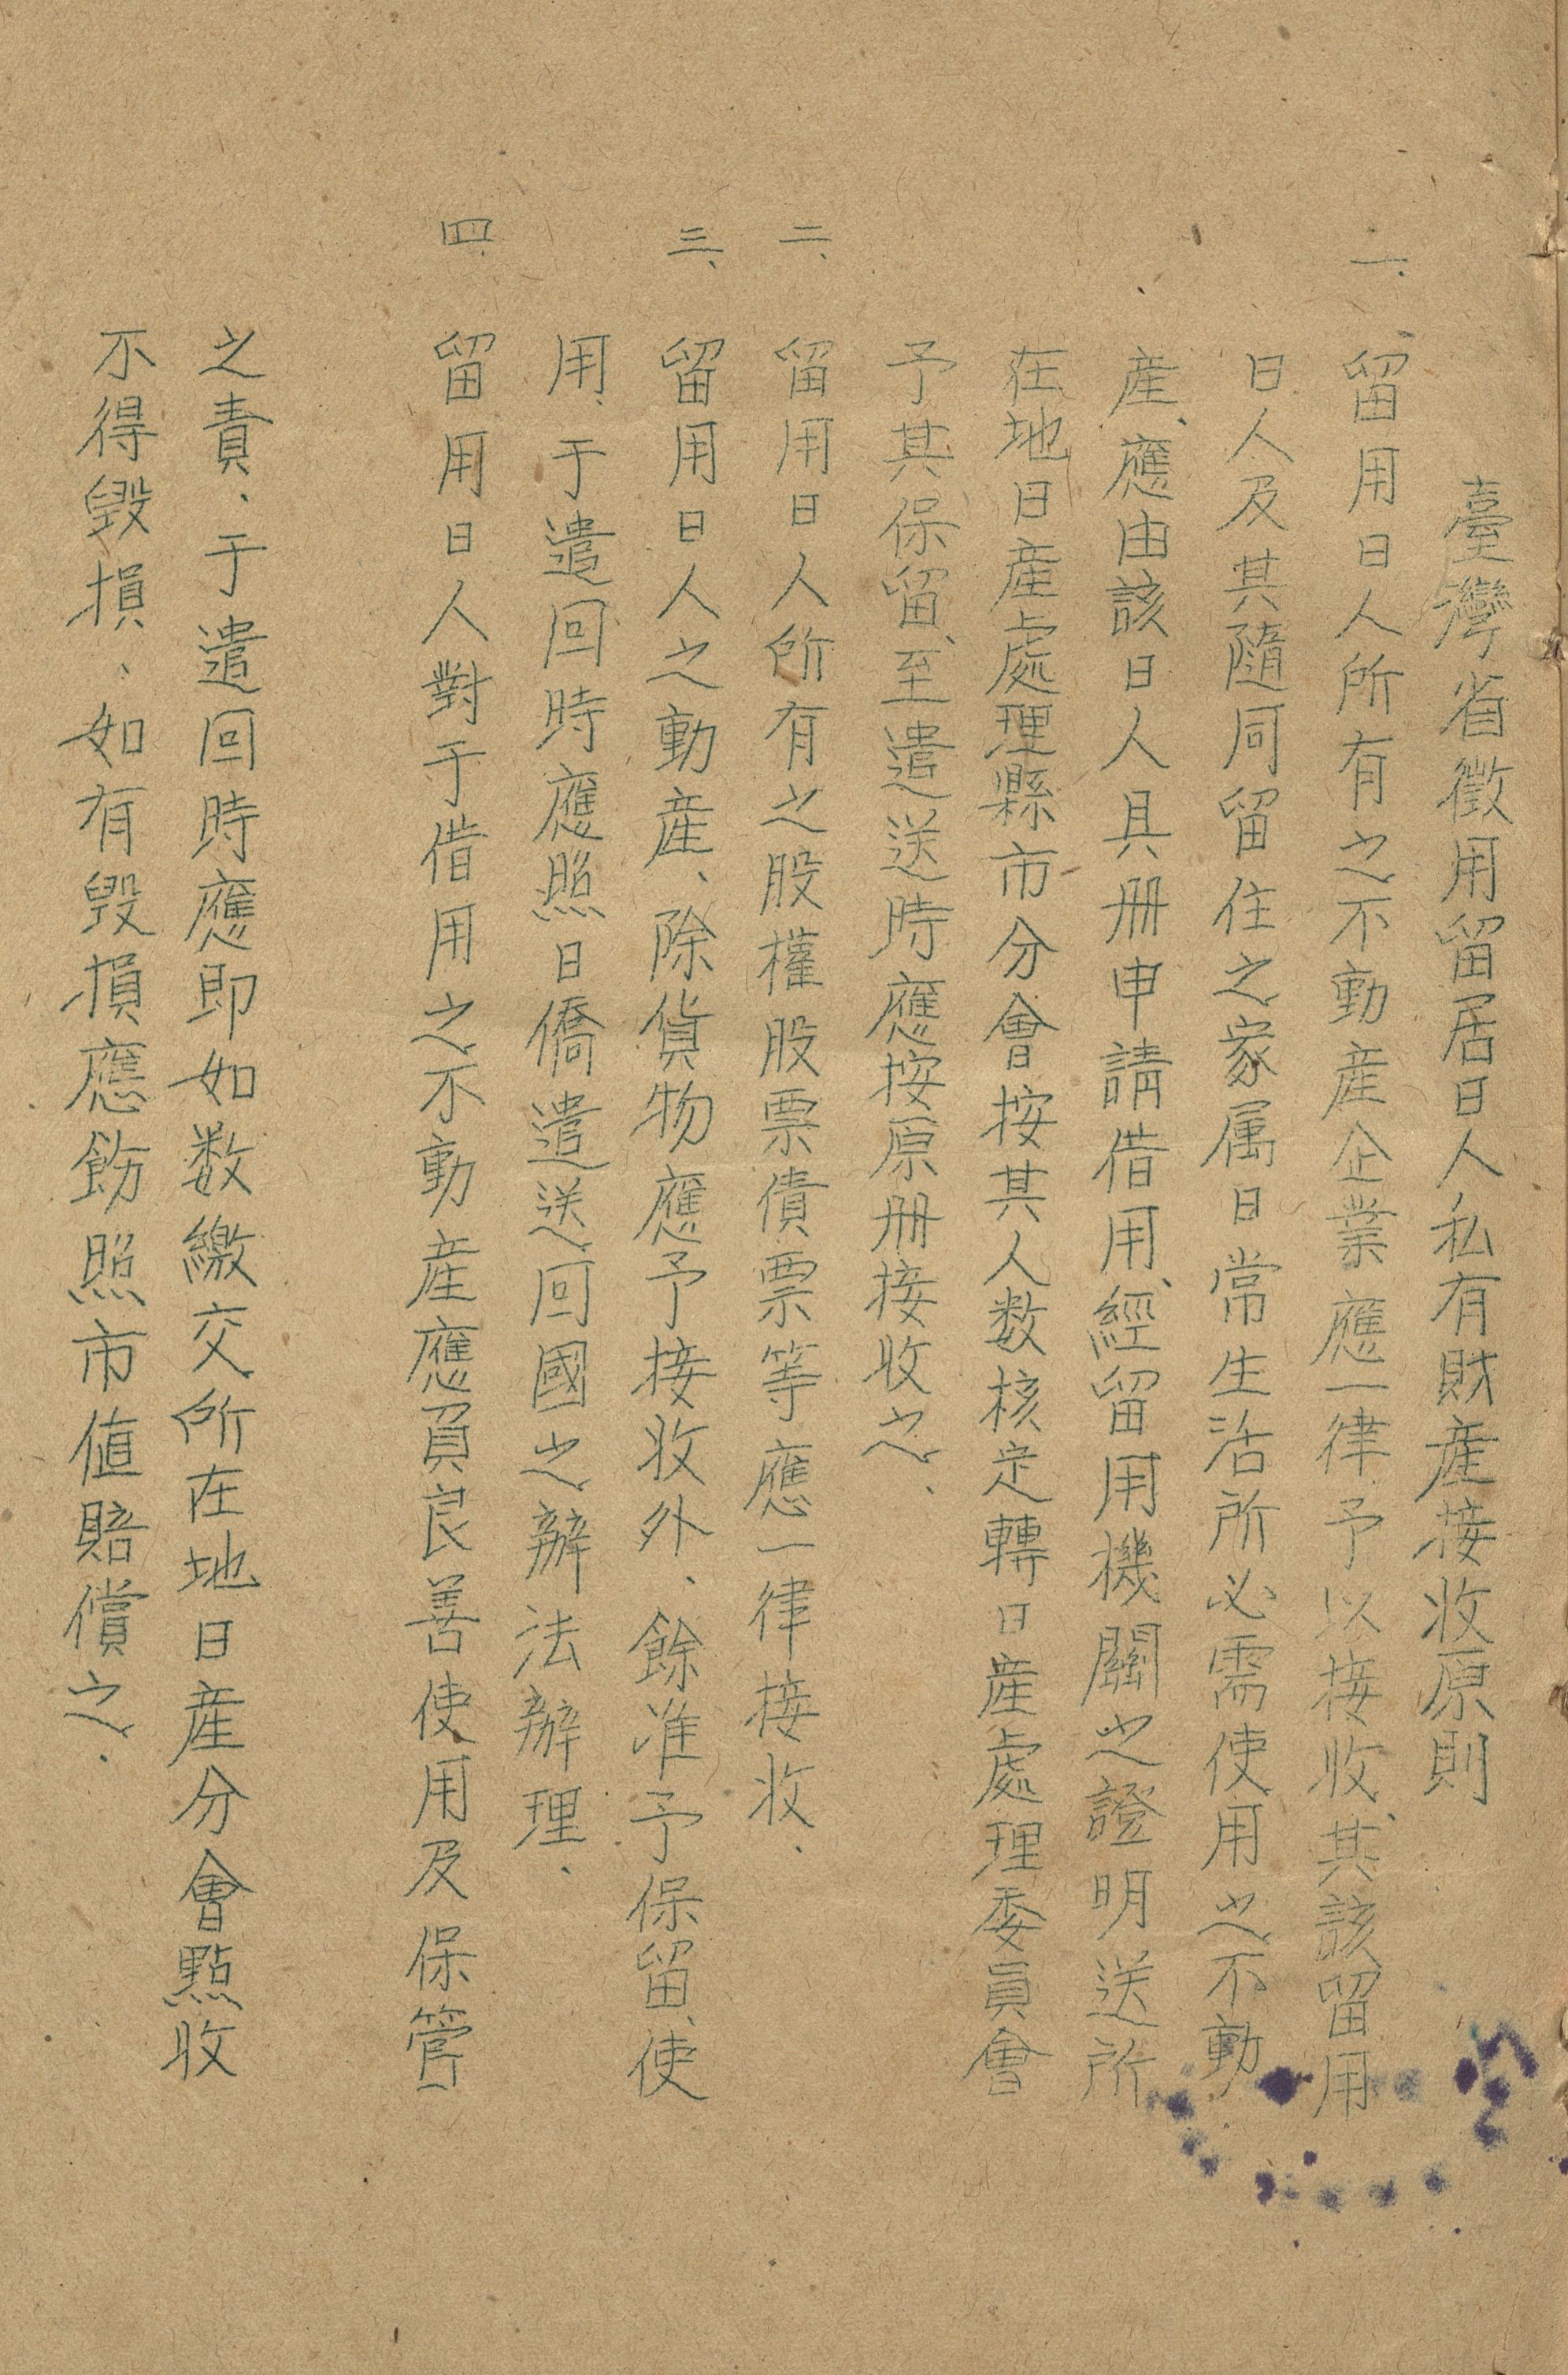 臺灣省徵用留居日人私有財產接收原則
一、留用日人所有之不動產企業應一律予以接收、其該留用
日人及其隨同留住之家属日常生活所必需使用之不動
產、應由該日人具册申請借用、經留用機關之證明送所
在地日產處理縣市分會按其人数核定轉日產處理委員會
予其保留、至遣送時應按原册接收之、
二、留用日人所有之股權股票債票等應一律接收．
三、留用日人之動產、除貨物應予接收外、餘准予保留、使
用、于遣回時應照日僑遣送回國之辦法辦理．
四、留用日人對于借用之不動產應負良善使用及保管
之責．于遣回時應即如数繳交所在地日產分會點收
不得毀損、如有毀損應飭照市值賠償之．